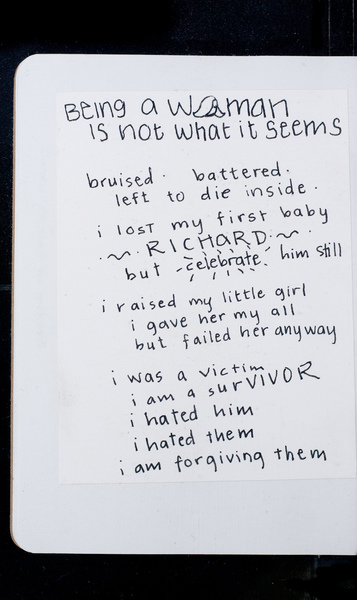 Being a Woman
is not what it seems
bruised. battered.
left to die inside.
i lost my first baby
~ RICHARD ~
but celebrate him still
i raised my little girl
i gave her my all
but failed her anyway
i was a victim
i am a surVIVOR
i hated him
i hated them
i am forgiving them